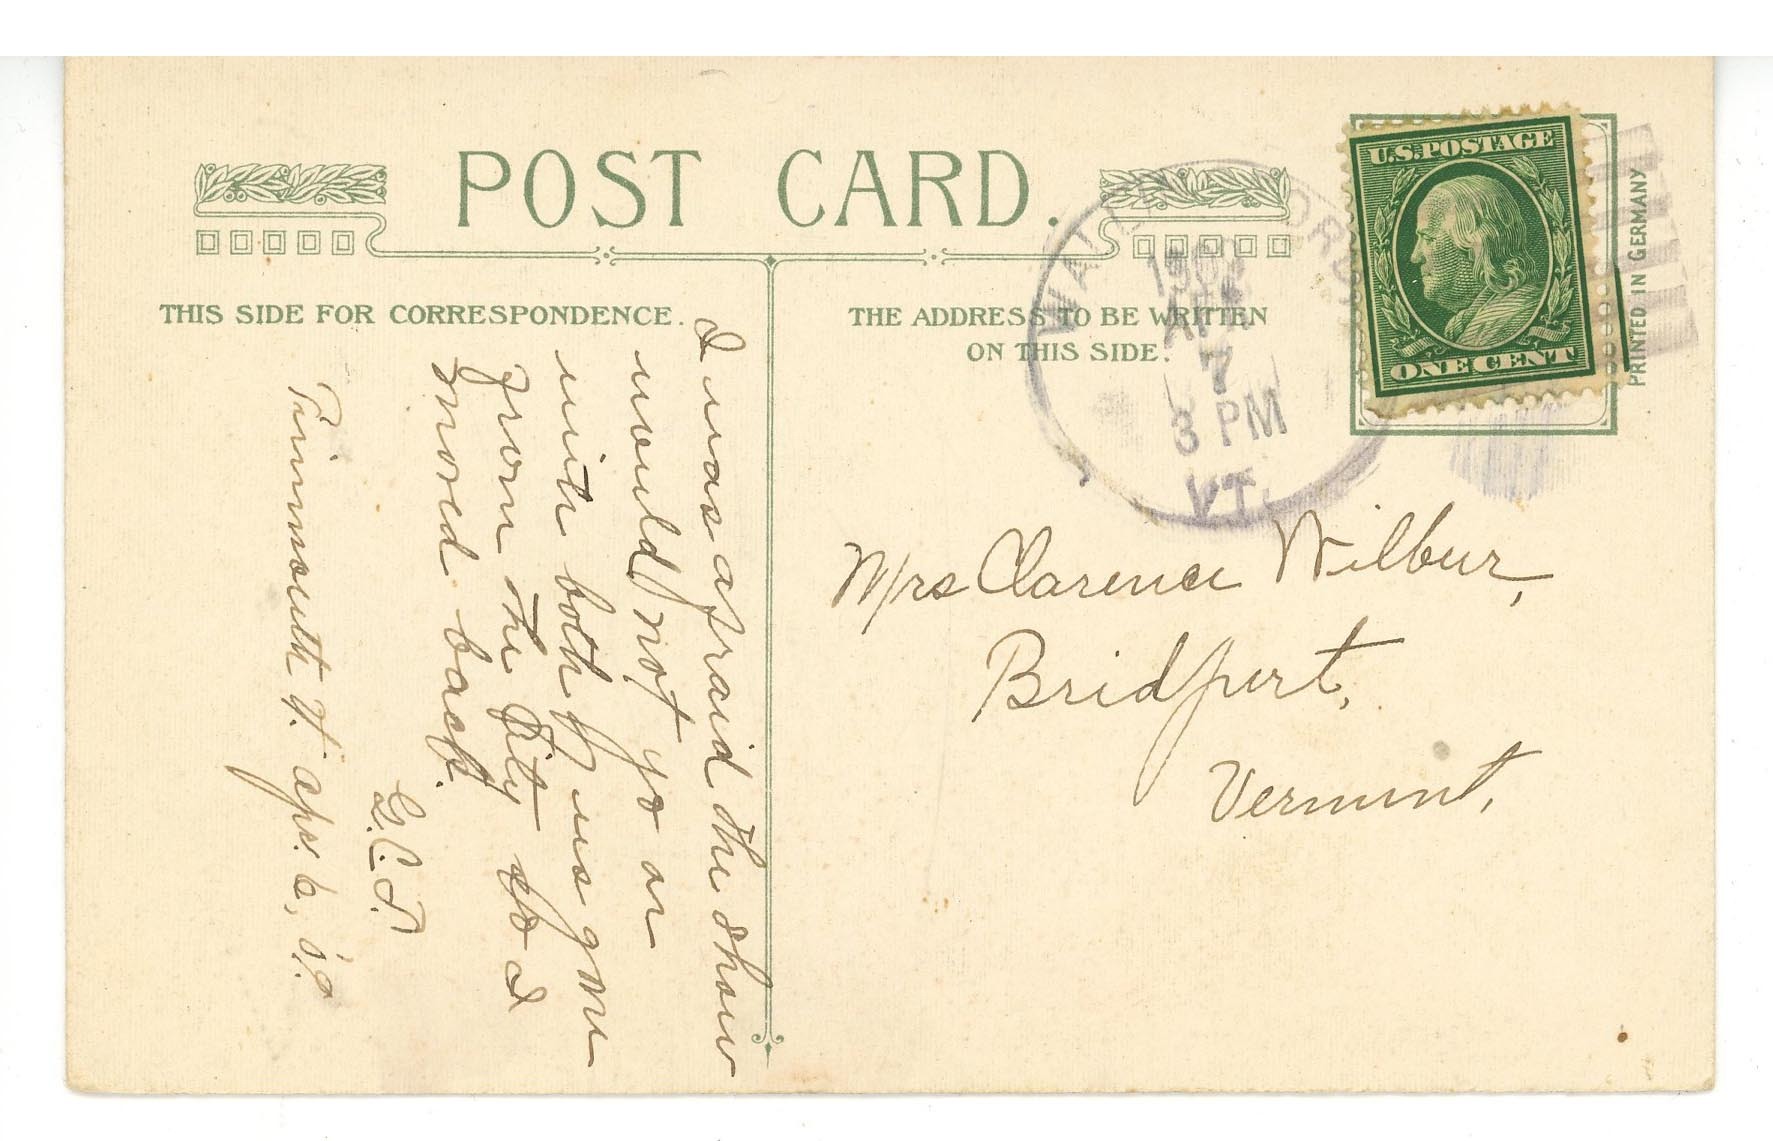 POST CARD.
THIS SIDE FOR CORRESPONDENCE.
THE ADDRESS TO BE WRITTEN
ON THIS SIDE.
U.S. POSTAGE
ONE CENT
PRINTED IN GERMANY
APR
7
3 PM
VT.
Mrs Clarence Wilbur,
Bridport,
Vermont,
I was afraid the show
would not go on
with both of us gone
from the City so I
moved back.
G.C.T.
Tinmouth Vt. apr. 6,